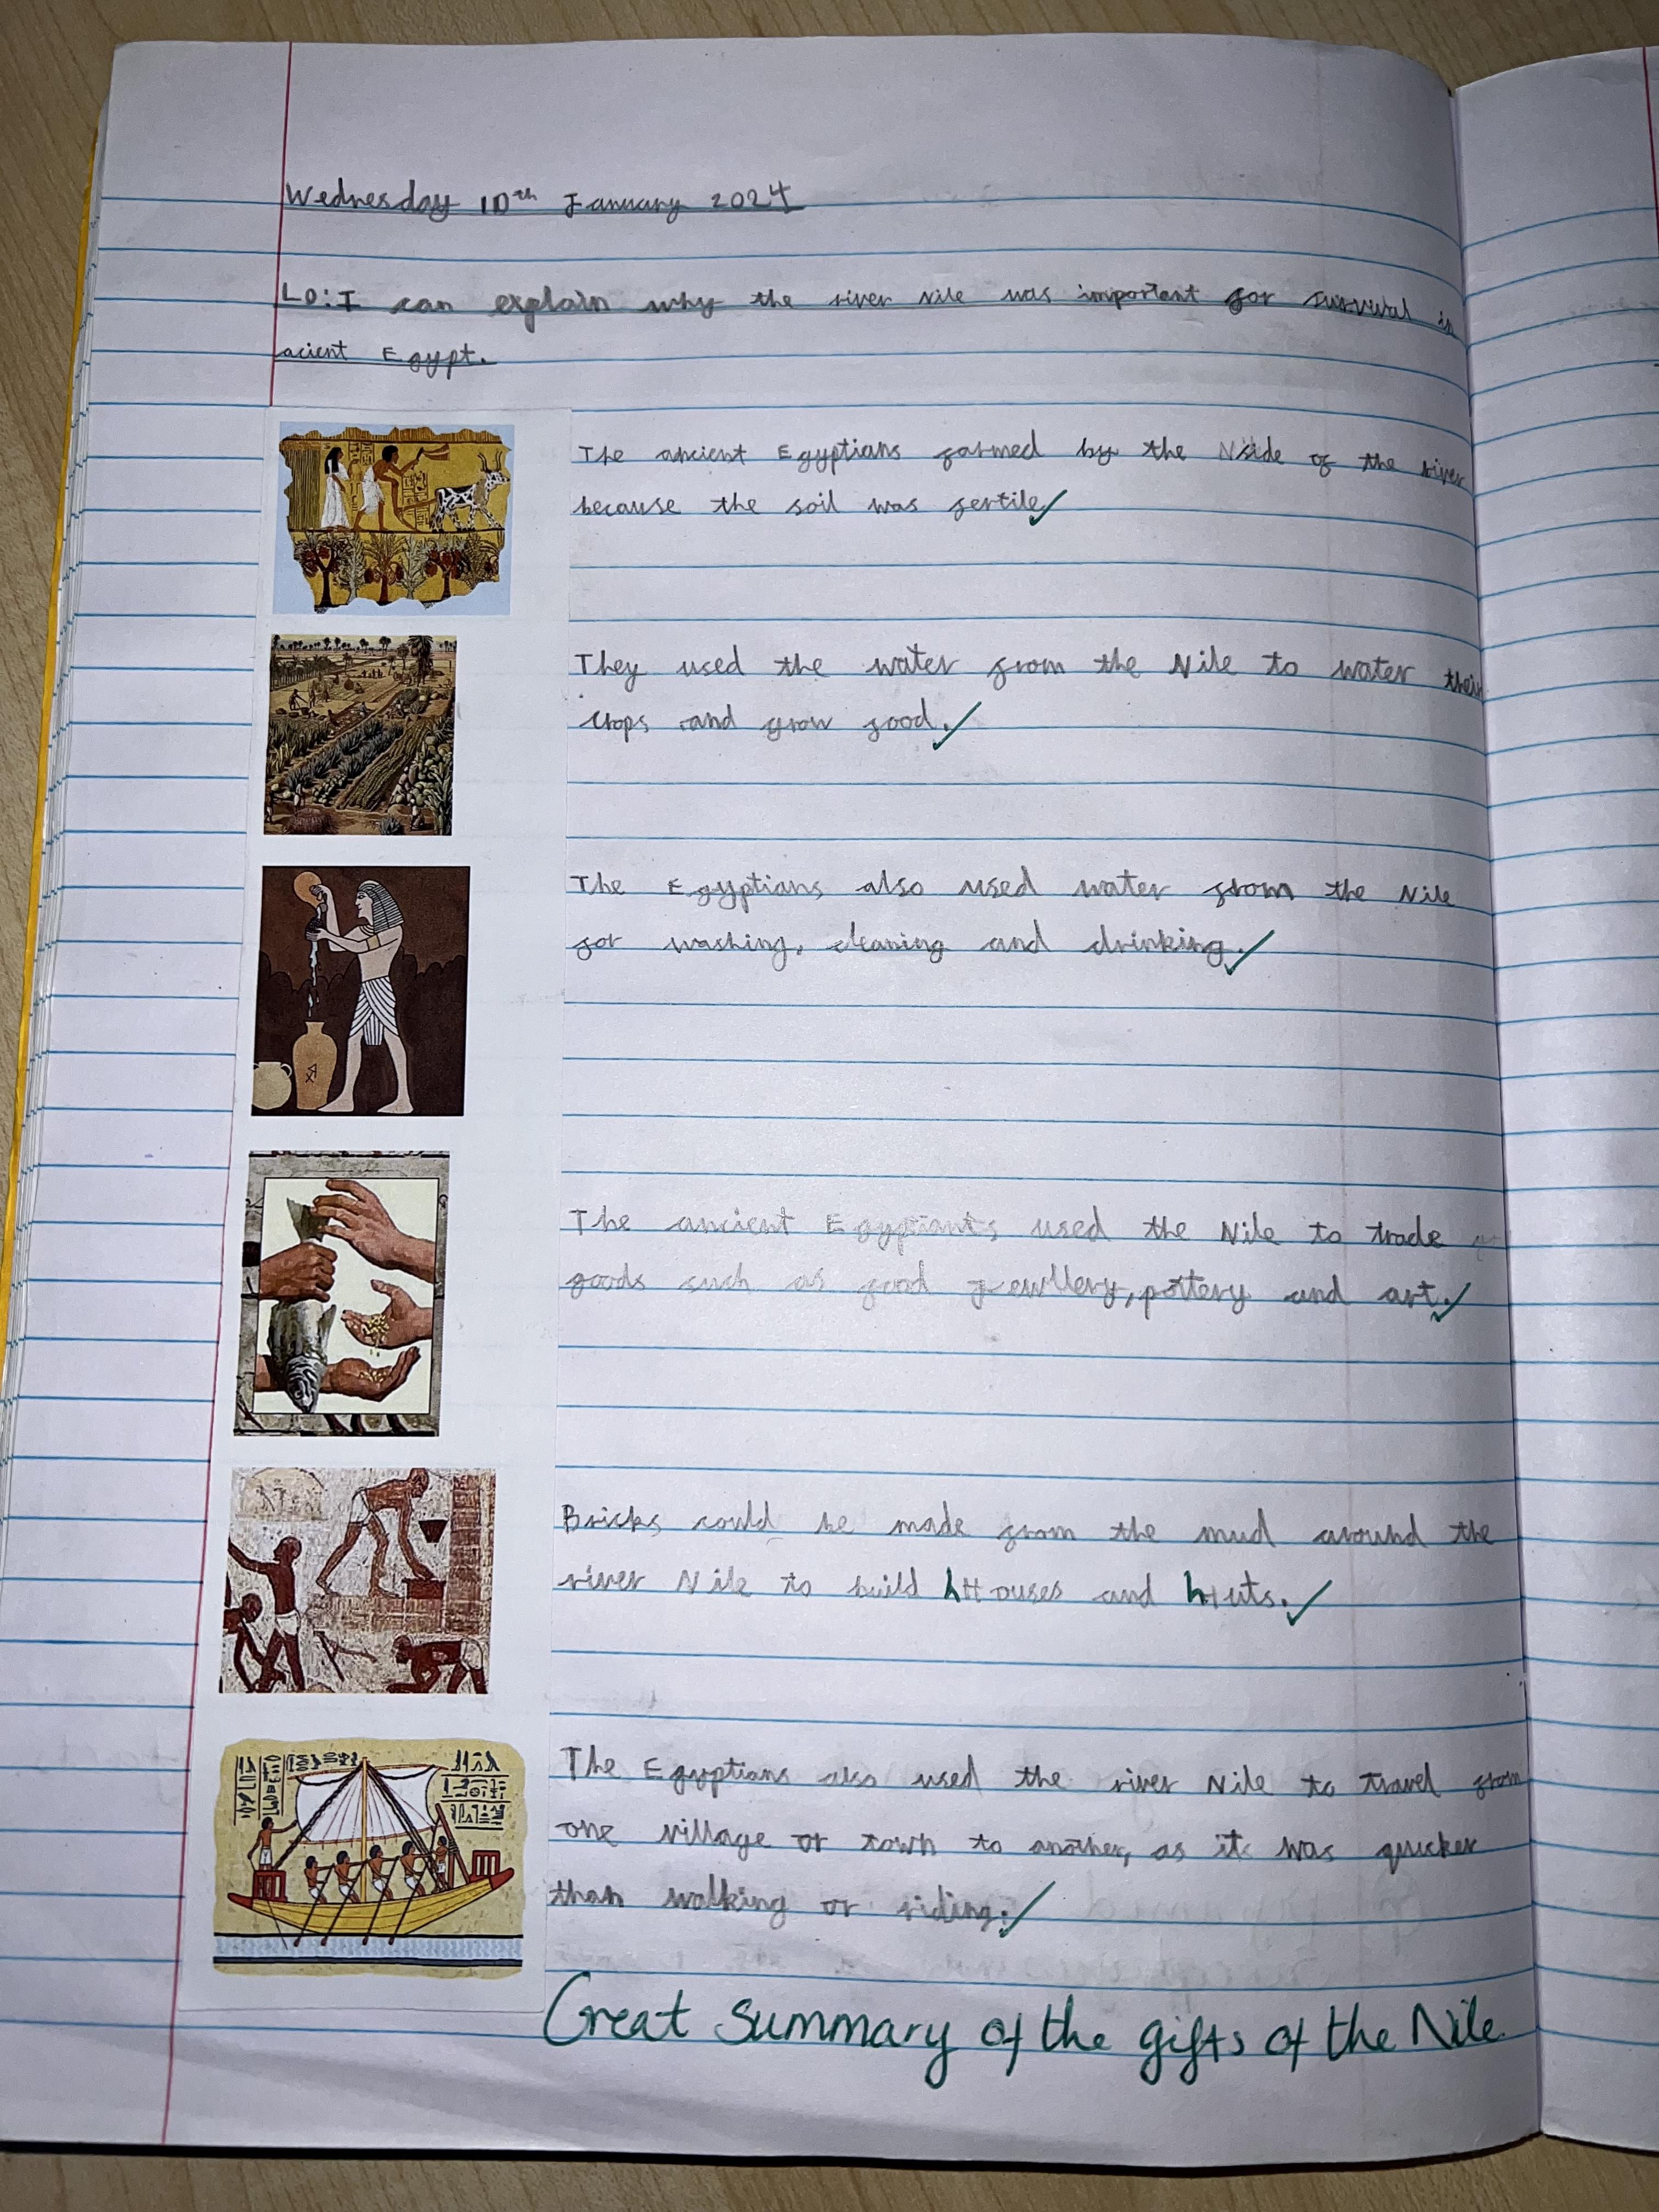 Wednesday 10th January 2024
LO: I can explain why the river Nile was important for survival in
acient Egypt.
The ancient Egyptians farmed by the side of the river
because the soil was fertile
They used the water from the Nile to water their
crops and grow food.
The Egyptians also used water from the Nile
for washing, cleaning and drinking.
The ancient Egyptians used the Nile to trade
goods such as food jewllery, pottery and art.
Bricks could be made from the mud around the
river Nile to build houses and huts.
The Egyptians also used the river Nile to travel from
one village or town to another, as it was quicker
than walking or riding.
Great summary of the gifts of the Nile